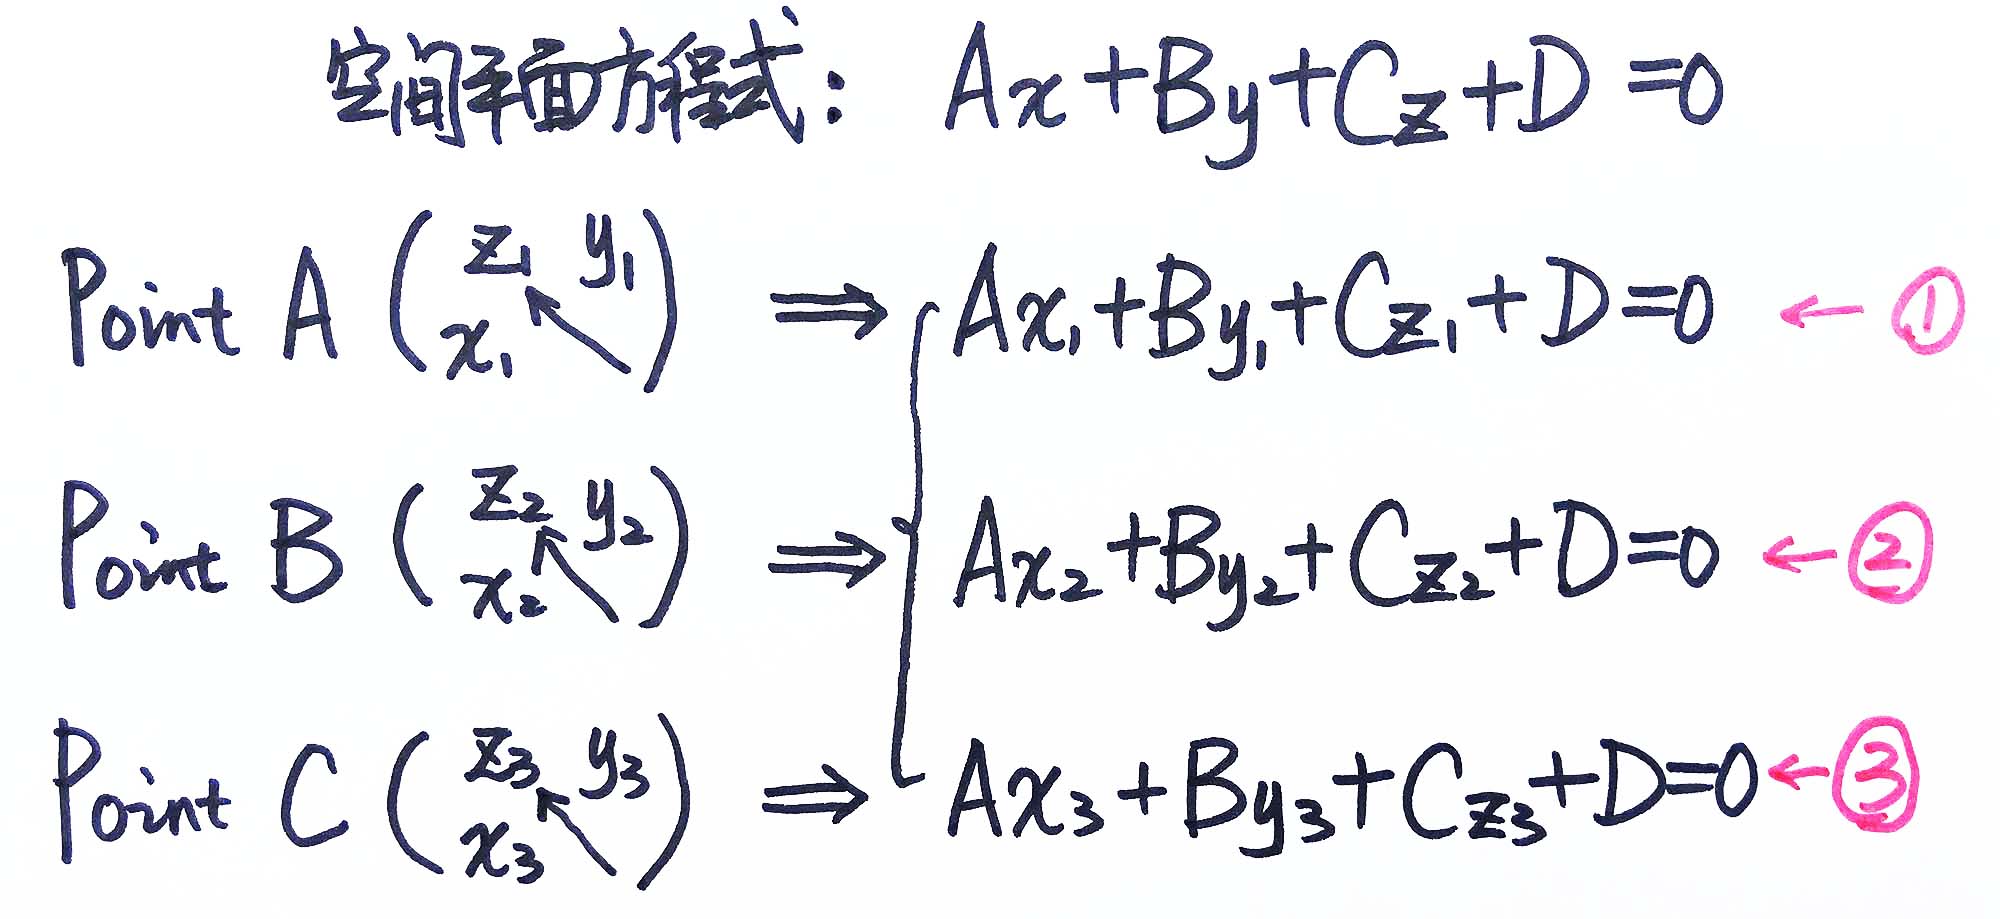 空间平面方程式: Ax+By+Cz+D=0
Point A ( z₁ y₁ x₁ ↖ ) ⇒ Ax₁+By₁+Cz₁+D=0 ← ①
Point B ( z₂ y₂ x₂ ↖ ) ⇒ Ax₂+By₂+Cz₂+D=0 ← ②
Point C ( z₃ y₃ x₃ ↖ ) ⇒ Ax₃+By₃+Cz₃+D=0 ← ③